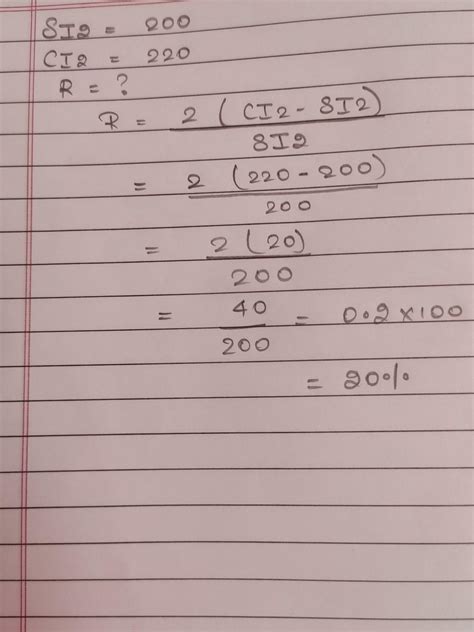 SI2 = 200
CI2 = 220
R = ?
R = 2 ( CI2 - SI2)
SI2
= 2 (220 - 200)
200
= 2 (20)
200
= 40 = 0.2 x 100
200
= 20%